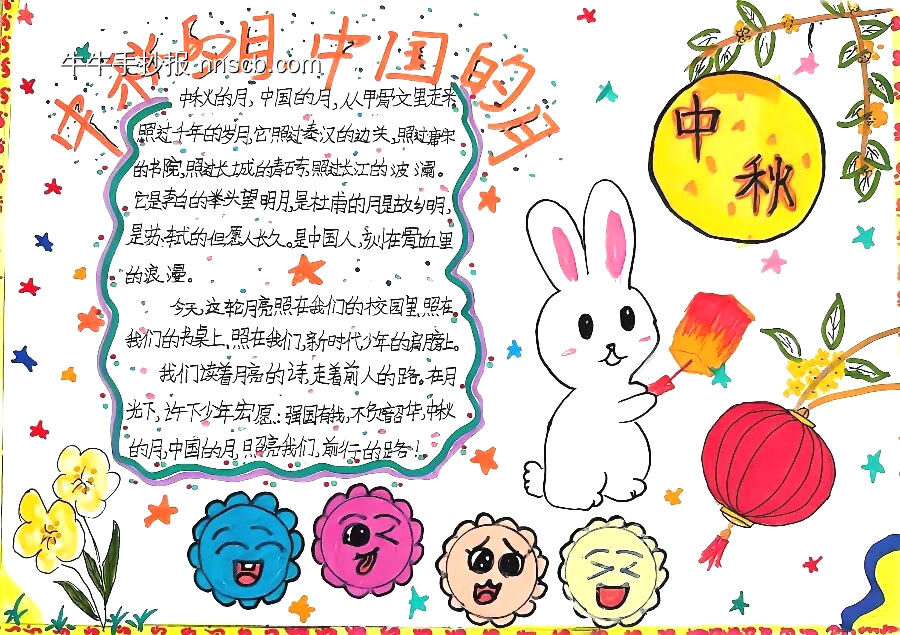 中秋的月中国的月
牛牛手抄报 nnscb.com
中秋
中秋的月,中国的月,从甲骨文里走来
照过千年的岁月,它照过秦汉的边关,照过唐宋
的书院,照过长城的青砖,照过长江的波澜。
它是李白的举头望明月,是杜甫的月是故乡明,
是苏轼的但愿人长久。是中国人,刻在骨血里
的浪漫。
今天,这轮月亮照在我们的校园里,照在
我们的书桌上,照在我们,新时代少年的肩膀上。
我们读着月亮的诗,走着前人的路。在月
光下,许下少年宏愿:强国有我,不负韶华,中秋
的月,中国的月,照亮我们,前行的路!